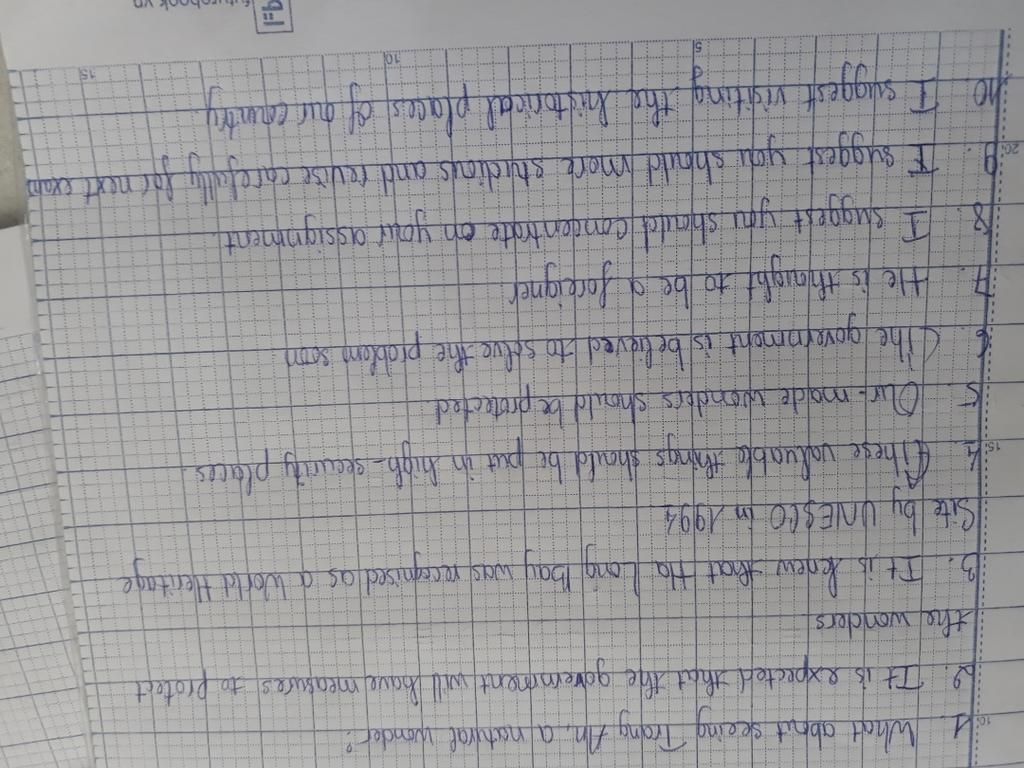 1. What about seeing Trang An, a natural wonder?
2. It is expected that the government will have measures to protect
the wonders
3. It is knew that Ha Long Bay was recognised as a World Heritage
Site by UNESCO in 1994
4. These valuable things should be put in high-security places.
5. Our-made wonders should be protected
6. The government is believed to solve the problem soon
7. He is thought to be a foreigner
8. I suggest you should concentrate on your assignment.
9. I suggest you should more studious and revise carefully for next exam
10 I suggest visiting the historical places of our country.
10
15
20
5
10
15